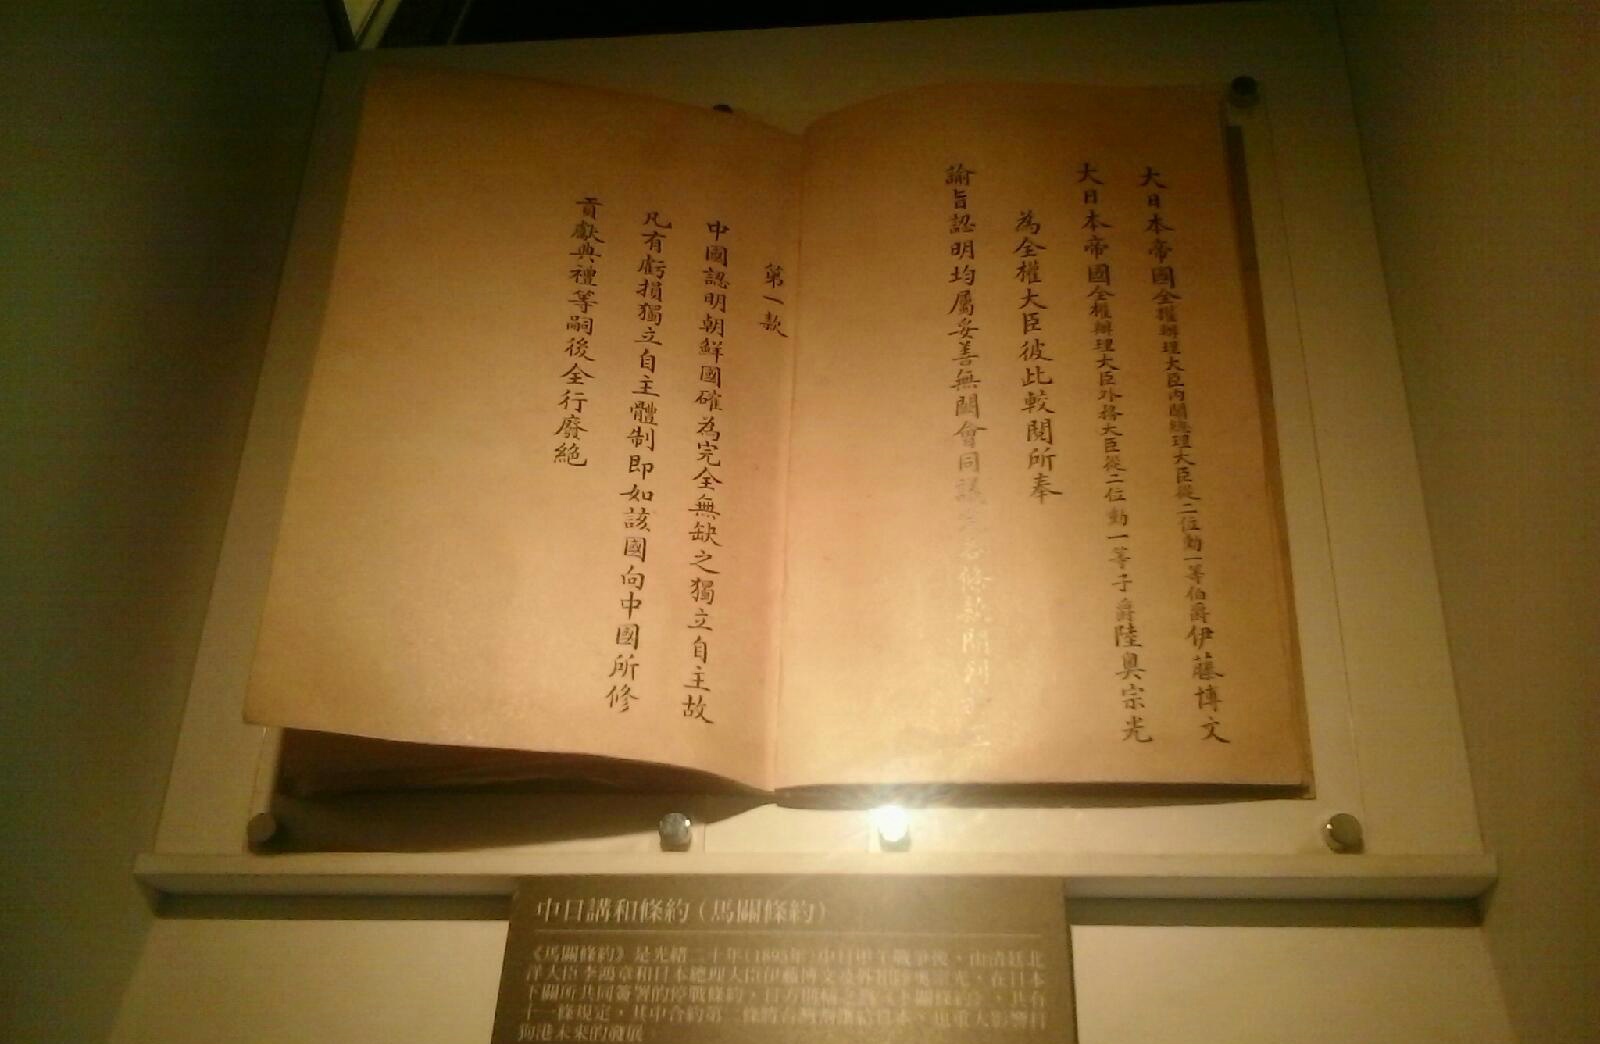 大日本帝國全權辦理大臣內閣總理大臣從二位勳一等伯爵伊藤博文
大日本帝國全權辦理大臣外務大臣從二位勳一等子爵陸奧宗光
為全權大臣彼此較閱所奉
諭旨認明均屬妥善無闕會同議定各條款開列
第一款
中國認明朝鮮國確為完全無缺之獨立自主故
凡有虧損獨立自主體制即如該國向中國所修
貢獻典禮等嗣後全行廢絕
中日講和條約(馬關條約)
《馬關條約》是光緒二十年(1895年)中日甲午戰爭後,由清廷北
洋大臣李鴻章和日本總理大臣伊藤博文及外相陸奧宗光,在日本
下關所共同簽署的停戰條約,日方則稱之為《下關條約》,共有
十一條規定,其中合約第二條將台灣割讓給日本,也重大影響打
狗港未來的發展。